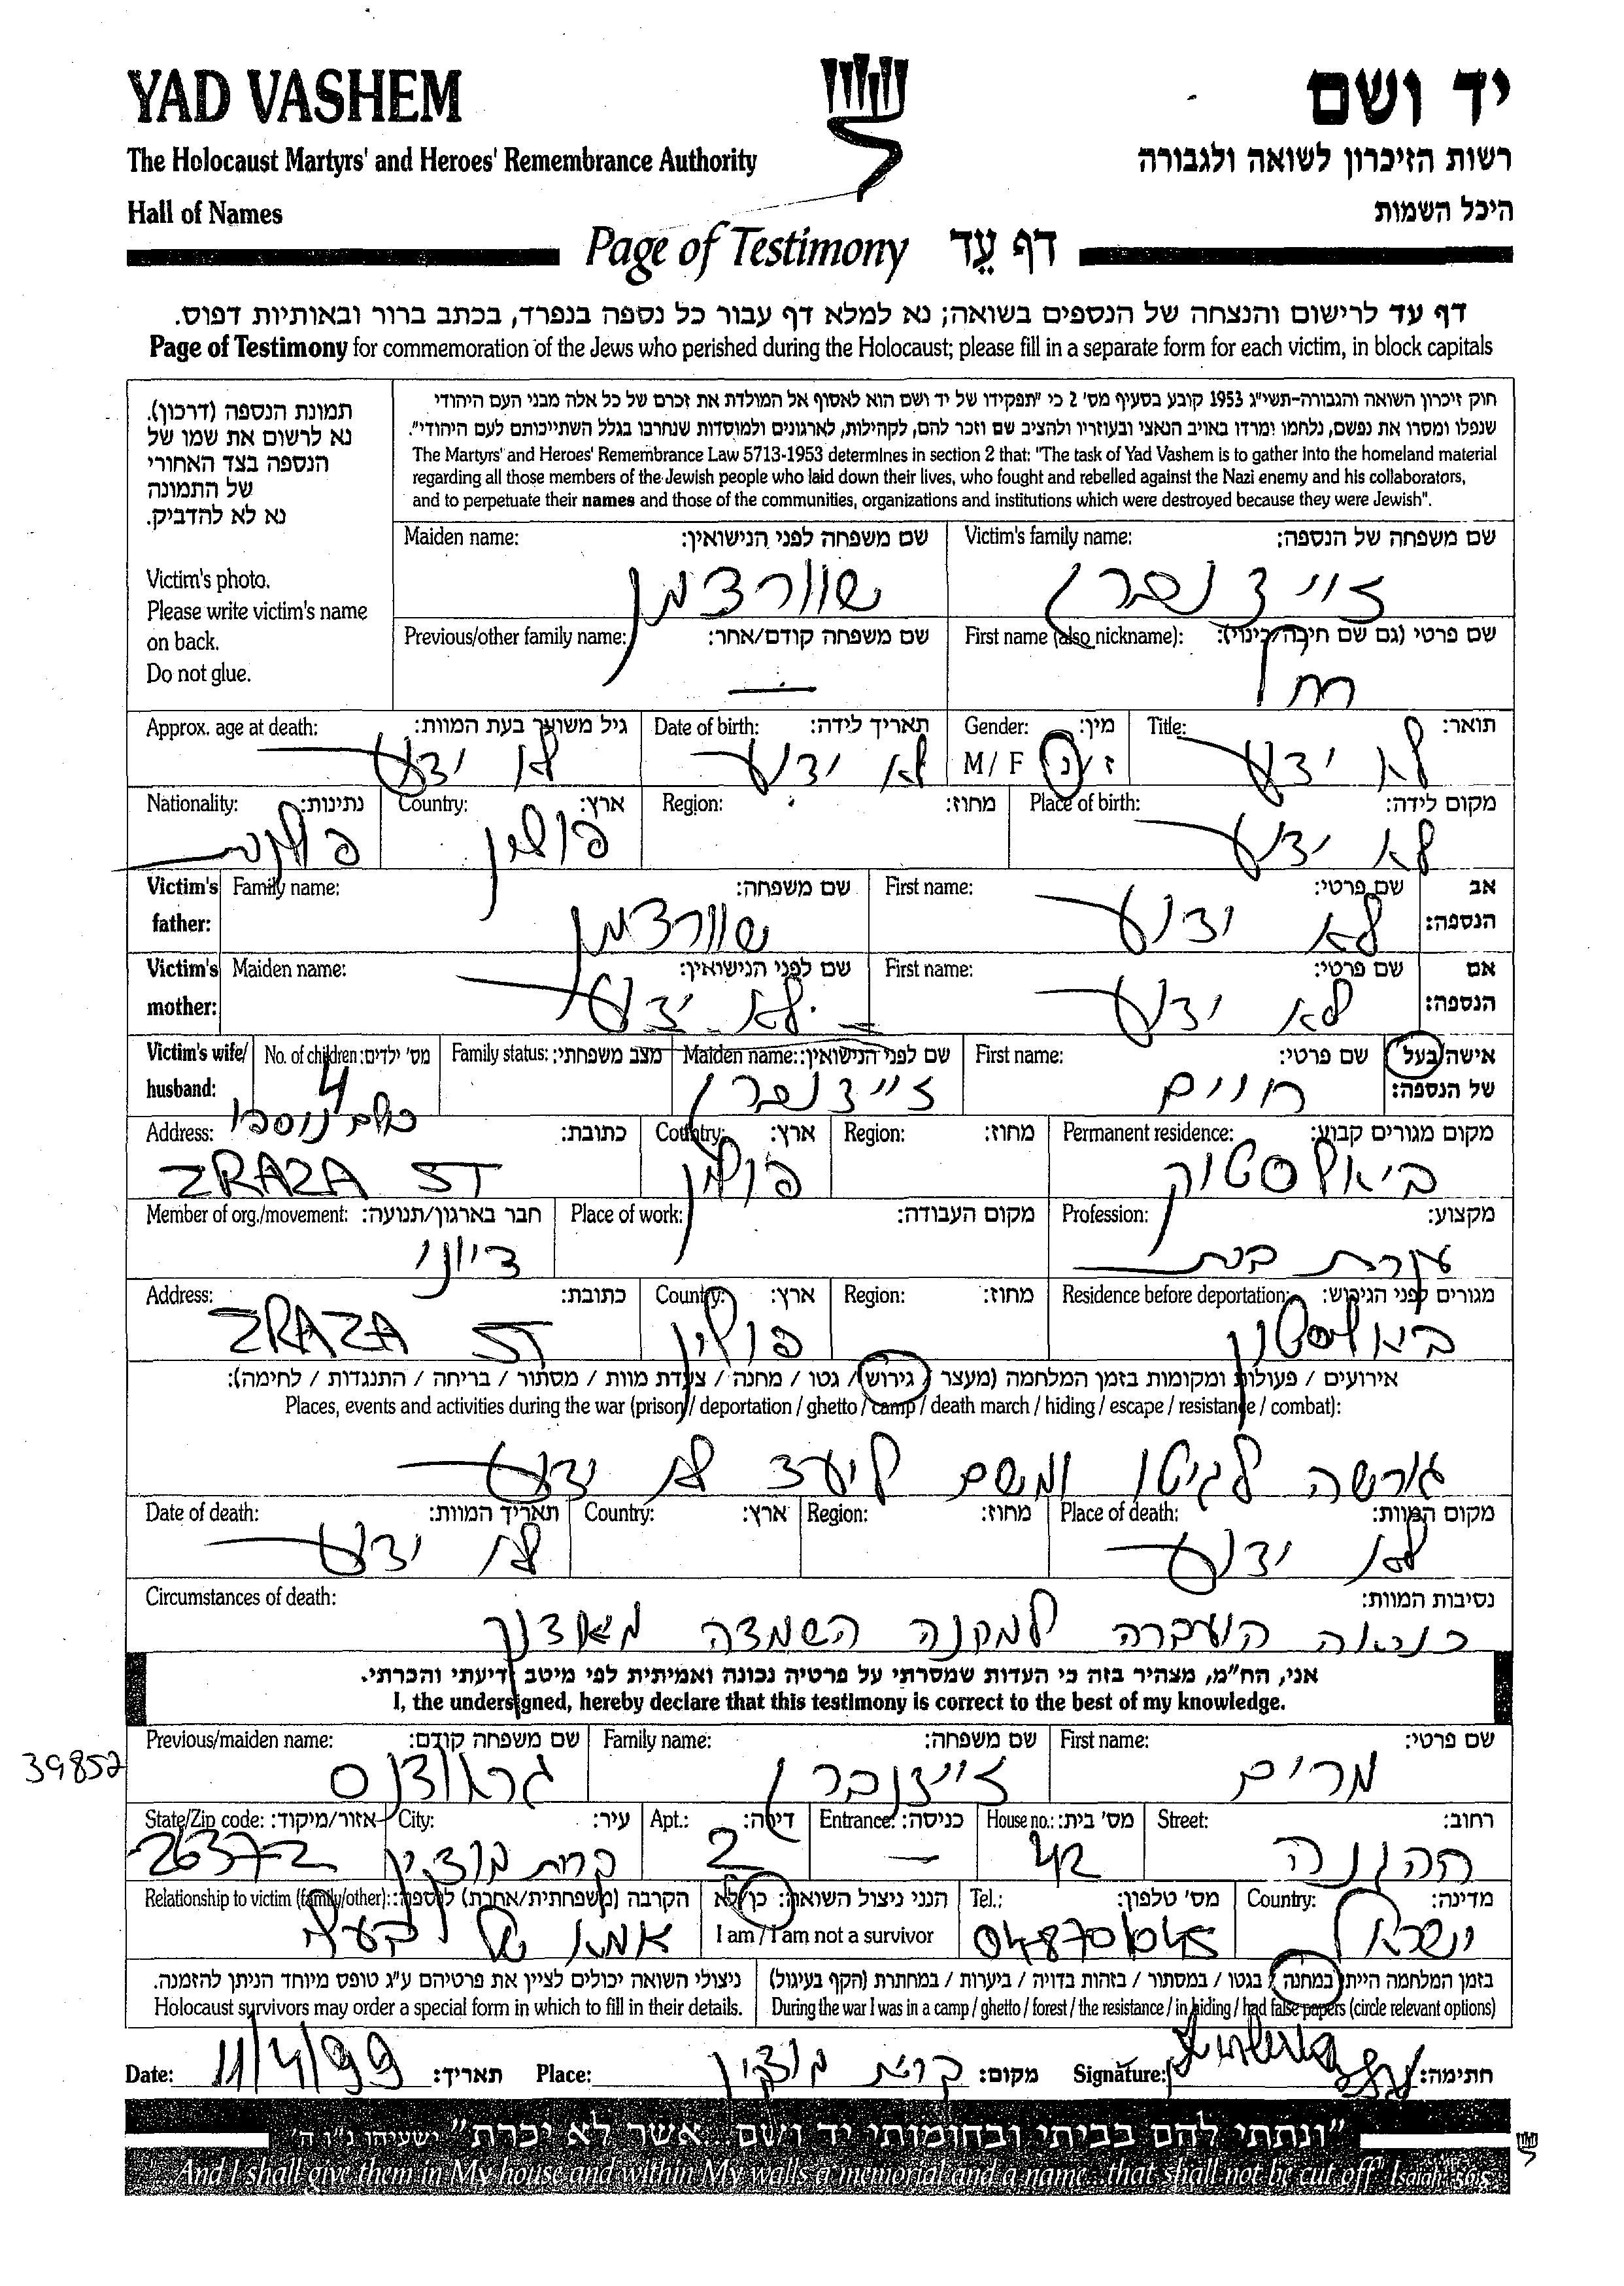 YAD VASHEM
יד ושם
The Holocaust Martyrs' and Heroes' Remembrance Authority
רשות הזיכרון לשואה ולגבורה
Hall of Names
היכל השמות
Page of Testimony דף עֵד
דף עד לרישום והנצחה של הנספים בשואה; נא למלא דף עבור כל נספה בנפרד, בכתב ברור ובאותיות דפוס.
Page of Testimony for commemoration of the Jews who perished during the Holocaust; please fill in a separate form for each victim, in block capitals
תמונת הנספה (דרכון).
נא לרשום את שמו של
הנספה בצד האחורי
של התמונה
נא לא להדביק.
Victim's photo.
Please write victim's name
on back.
Do not glue.
חוק זיכרון השואה והגבורה-תשי"ג 1953 קובע בסעיף מס' 2 כי "תפקידו של יד ושם הוא לאסוף אל המולדת את זכרם של כל אלה מבני העם היהודי
שנפלו ומסרו את נפשם, נלחמו ומרדו באויב הנאצי ובעוזריו ולהציב שם וזכר להם, לקהילות, לארגונים ולמוסדות שנחרבו בגלל השתייכותם לעם היהודי".
The Martyrs' and Heroes' Remembrance Law 5713-1953 determines in section 2 that: "The task of Yad Vashem is to gather into the homeland material
regarding all those members of the Jewish people who laid down their lives, who fought and rebelled against the Nazi enemy and his collaborators,
and to perpetuate their names and those of the communities, organizations and institutions which were destroyed because they were Jewish".
Victim's family name: שם משפחה של הנספה:
זיידנברג
Maiden name: שם משפחה לפני הנישואין:
שוורצמן
First name (also nickname): שם פרטי (גם שם חיבה/כינוי):
Previous/other family name: שם משפחה קודם/אחר:
—
Title: תואר:
לא ידוע
Gender: מין:
M / F ז / נ
Date of birth: תאריך לידה:
לא ידוע
Approx. age at death: גיל משוער בעת המוות:
לא ידוע
Place of birth: מקום לידה:
לא ידוע
Region: מחוז:
Country: ארץ:
פולין
Nationality: נתינות:
פולנית
Victim's father: אב הנספה:
First name: שם פרטי:
לא ידוע
Family name: שם משפחה:
שוורצמן
Victim's mother: אם הנספה:
First name: שם פרטי:
לא ידוע
Maiden name: שם לפני הנישואין:
לא ידוע
Victim's wife/ husband: אישה/בעל של הנספה:
First name: שם פרטי:
חיים
Maiden name: שם לפני הנישואין:
זיידנברג
Family status: מצב משפחתי:
No. of children: מס' ילדים:
4
כולם נוספו
Permanent residence: מקום מגורים קבוע:
ביאליסטוק
Region: מחוז:
Country: ארץ:
פולין
Address: כתובת:
ZRAZA ST
Profession: מקצוע:
עקרת בית
Place of work: מקום העבודה:
Member of org./movement: חבר בארגון/תנועה:
ציוני
Residence before deportation: מגורים לפני הגירוש:
ביאליסטוק
Region: מחוז:
Country: ארץ:
פולין
Address: כתובת:
ZRAZA ST
אירועים / פעולות ומקומות בזמן המלחמה (מעצר / גירוש / גטו / מחנה / צעדת מוות / מסתור / בריחה / התנגדות / לחימה):
Places, events and activities during the war (prison / deportation / ghetto / camp / death march / hiding / escape / resistance / combat):
גורשה לגיטו ומשם ליעד לא ידוע
Place of death: מקום המוות:
לא ידוע
Region: מחוז:
Country: ארץ:
Date of death: תאריך המוות:
לא ידוע
Circumstances of death: נסיבות המוות:
כנראה הועברה למחנה השמדה מאידנק
אני, הח"מ, מצהיר בזה כי העדות שמסרתי על פרטיה נכונה ואמיתית לפי מיטב ידיעתי והכרתי.
I, the undersigned, hereby declare that this testimony is correct to the best of my knowledge.
39852
First name: שם פרטי:
מרים
Family name: שם משפחה:
זיידנברג
Previous/maiden name: שם משפחה קודם:
Street: רחוב:
ההגנה
House no.: מס' בית:
42
Entrance: כניסה:
—
Apt.: דירה:
2
City: עיר:
קרית מוצקין
State/Zip code: אזור/מיקוד:
26372
Country: מדינה:
ישראל
Tel.: מס' טלפון:
הנני ניצול השואה: כן/לא
I am / I am not a survivor
Relationship to victim (family/other): הקרבה (משפחתית/אחרת) לנספה:
אמא של בעלי
בזמן המלחמה הייתי במחנה / בגטו / במסתור / בזהות בדויה / ביערות / במחתרת (הקף בעיגול)
During the war I was in a camp / ghetto / forest / the resistance / in hiding / had false papers (circle relevant options)
ניצולי השואה יכולים לציין את פרטיהם ע"ג טופס מיוחד הניתן להזמנה.
Holocaust survivors may order a special form in which to fill in their details.
Date: 11/4/99 תאריך:
Place: קרית מוצקין מקום:
Signature: חתימה:
"ונתתי להם בביתי ובחומותי יד ושם... אשר לא יכרת" ישעיהו נ"ו ה'
"...And I shall give them in My house and within My walls a memorial and a name...that shall not be cut off" Isaiah 56:5